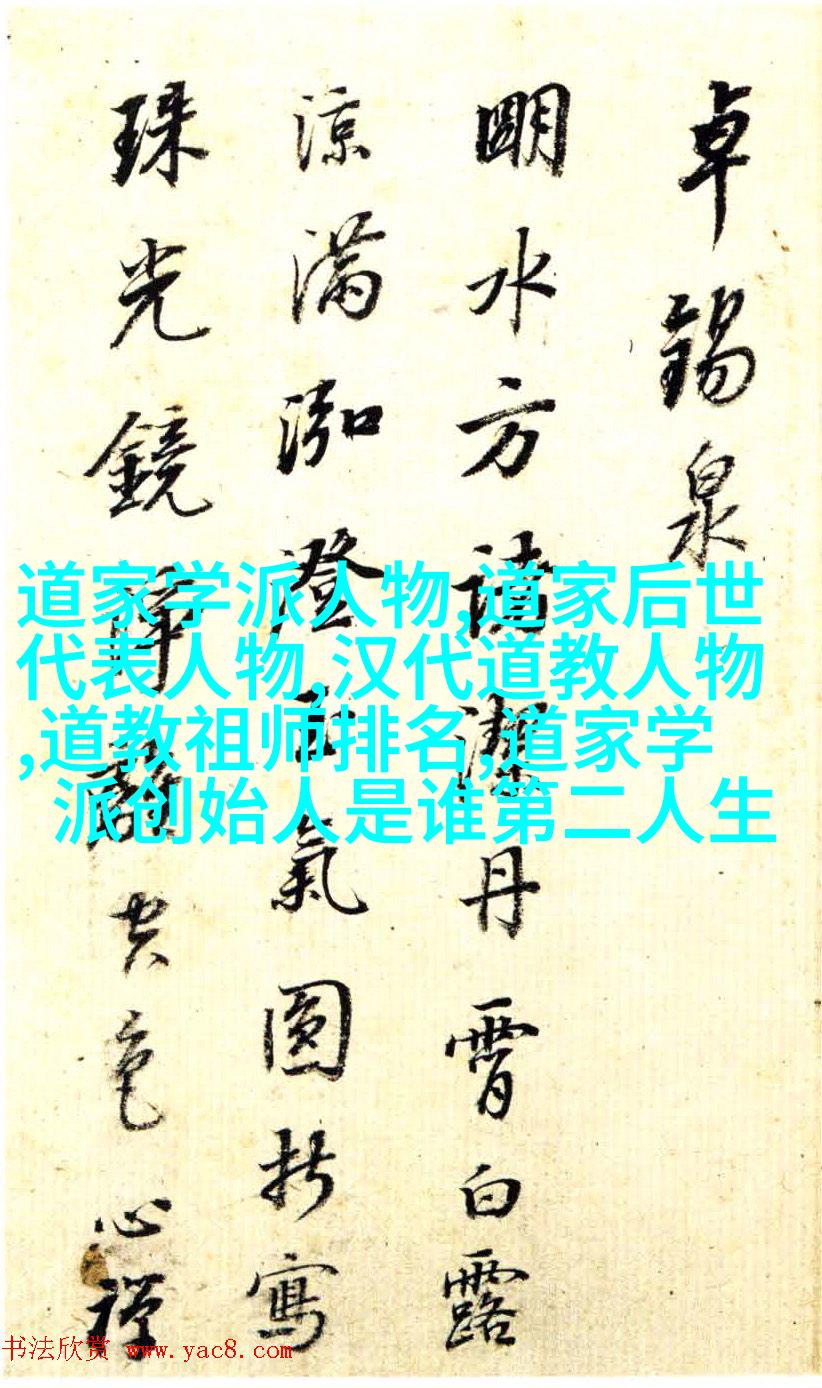 卓錫泉
明水方諸潔丹霄白露
涼滿泓澄玉氣圓折寫
珠光鏡空色心禪
道家学派人物,道家后世
代表人物,汉代道教人物
,道教祖师排名,道家学
派创始人是谁第二人生
书法欣赏 www.yac8.com